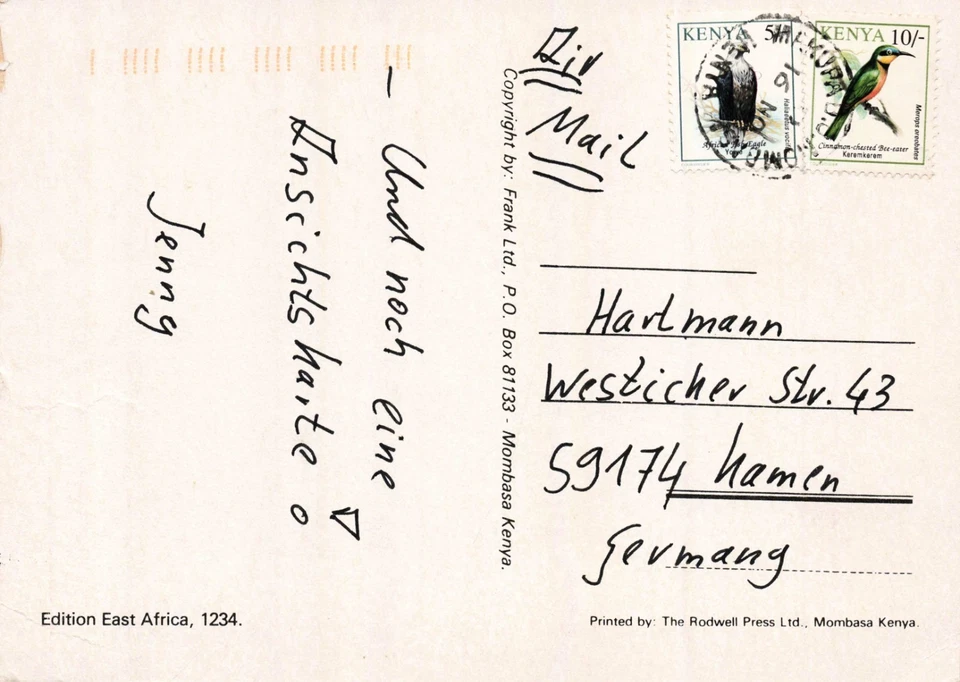 – Und noch eine
Ansichtskarte
Jenny
Copyright by: Frank Ltd., P.O. Box 81133 - Mombasa Kenya.
Air
Mail
KENYA 5/-
Haliaeetus vocifer
African Fish Eagle
KENYA 10/-
Merops oreobates
Cinnamon-chested Bee-eater
Keremkerem
Hartmann
Westicher Str. 43
59174 Kamen
Germany
Edition East Africa, 1234.
Printed by: The Rodwell Press Ltd., Mombasa Kenya.